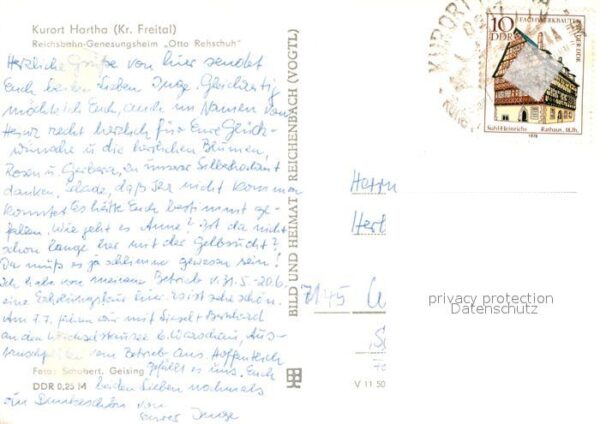 Kurort Hartha (Kr. Freital)
Reichsbahn-Genesungsheim „Otto Rehschuh"
Herzliche Grüße von hier sendet
Euch beiden Lieben Inge. Gleichzeitig
möchte ich Euch, auch im Namen von
recht herzlich für Eure Glück-
wünsche u. die herrlichen Blumen,
Rosen u. Gerbera, zu unserer Silberhochzeit
danken. Schade, daß Ihr nicht kommen
konntet. Es hätte Euch bestimmt ge-
fallen. Wie geht es Anne? Ist da nicht
schon lange her mit der Gelbsucht?
Da muß es ja schlimm gewesen sein!
Ich habe von meinem Betrieb v. 31.5.-20.6.
eine hier. Es ist sehr schön.
Am 1.7. fahren wir mit Bernhard
an den b. Warschau, Aus-
vom Betrieb aus. Hoffentlich
Foto: Schubert, Geising gefällt es uns. Euch
DDR 0,25 M beiden Lieben nochmals
ein Dankeschön von
Eurer Inge
BILD UND HEIMAT REICHENBACH (VOGTL)
V 11 50
KURORT
10
DDR
FACHWERKBAUTEN
IN DER DDR
Suhl-Heinrichs Rathaus, 16. Jh.
1978
Herrn
7145
privacy protection
Datenschutz